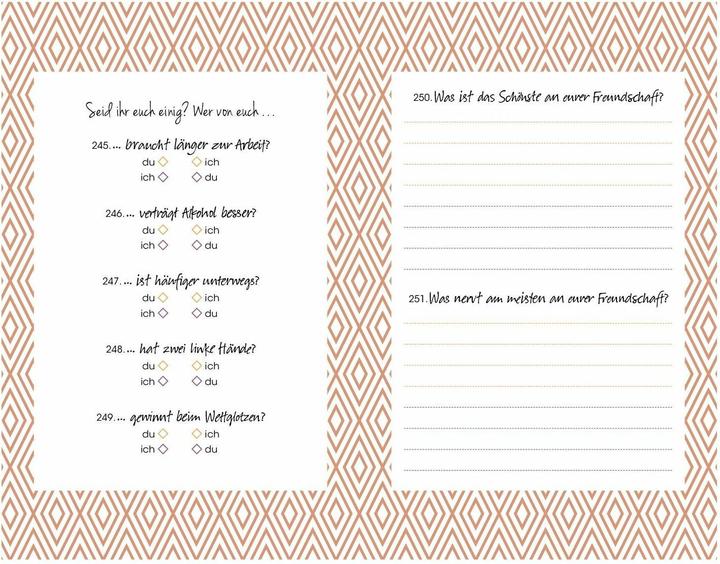 Seid ihr euch einig? Wer von euch ...
245. ... braucht länger zur Arbeit?
du ich
ich du
246. ... verträgt Alkohol besser?
du ich
ich du
247. ... ist häufiger unterwegs?
du ich
ich du
248. ... hat zwei linke Hände?
du ich
ich du
249. ... gewinnt beim Wettglotzen?
du ich
ich du
250. Was ist das Schönste an eurer Freundschaft?
251. Was nervt am meisten an eurer Freundschaft?